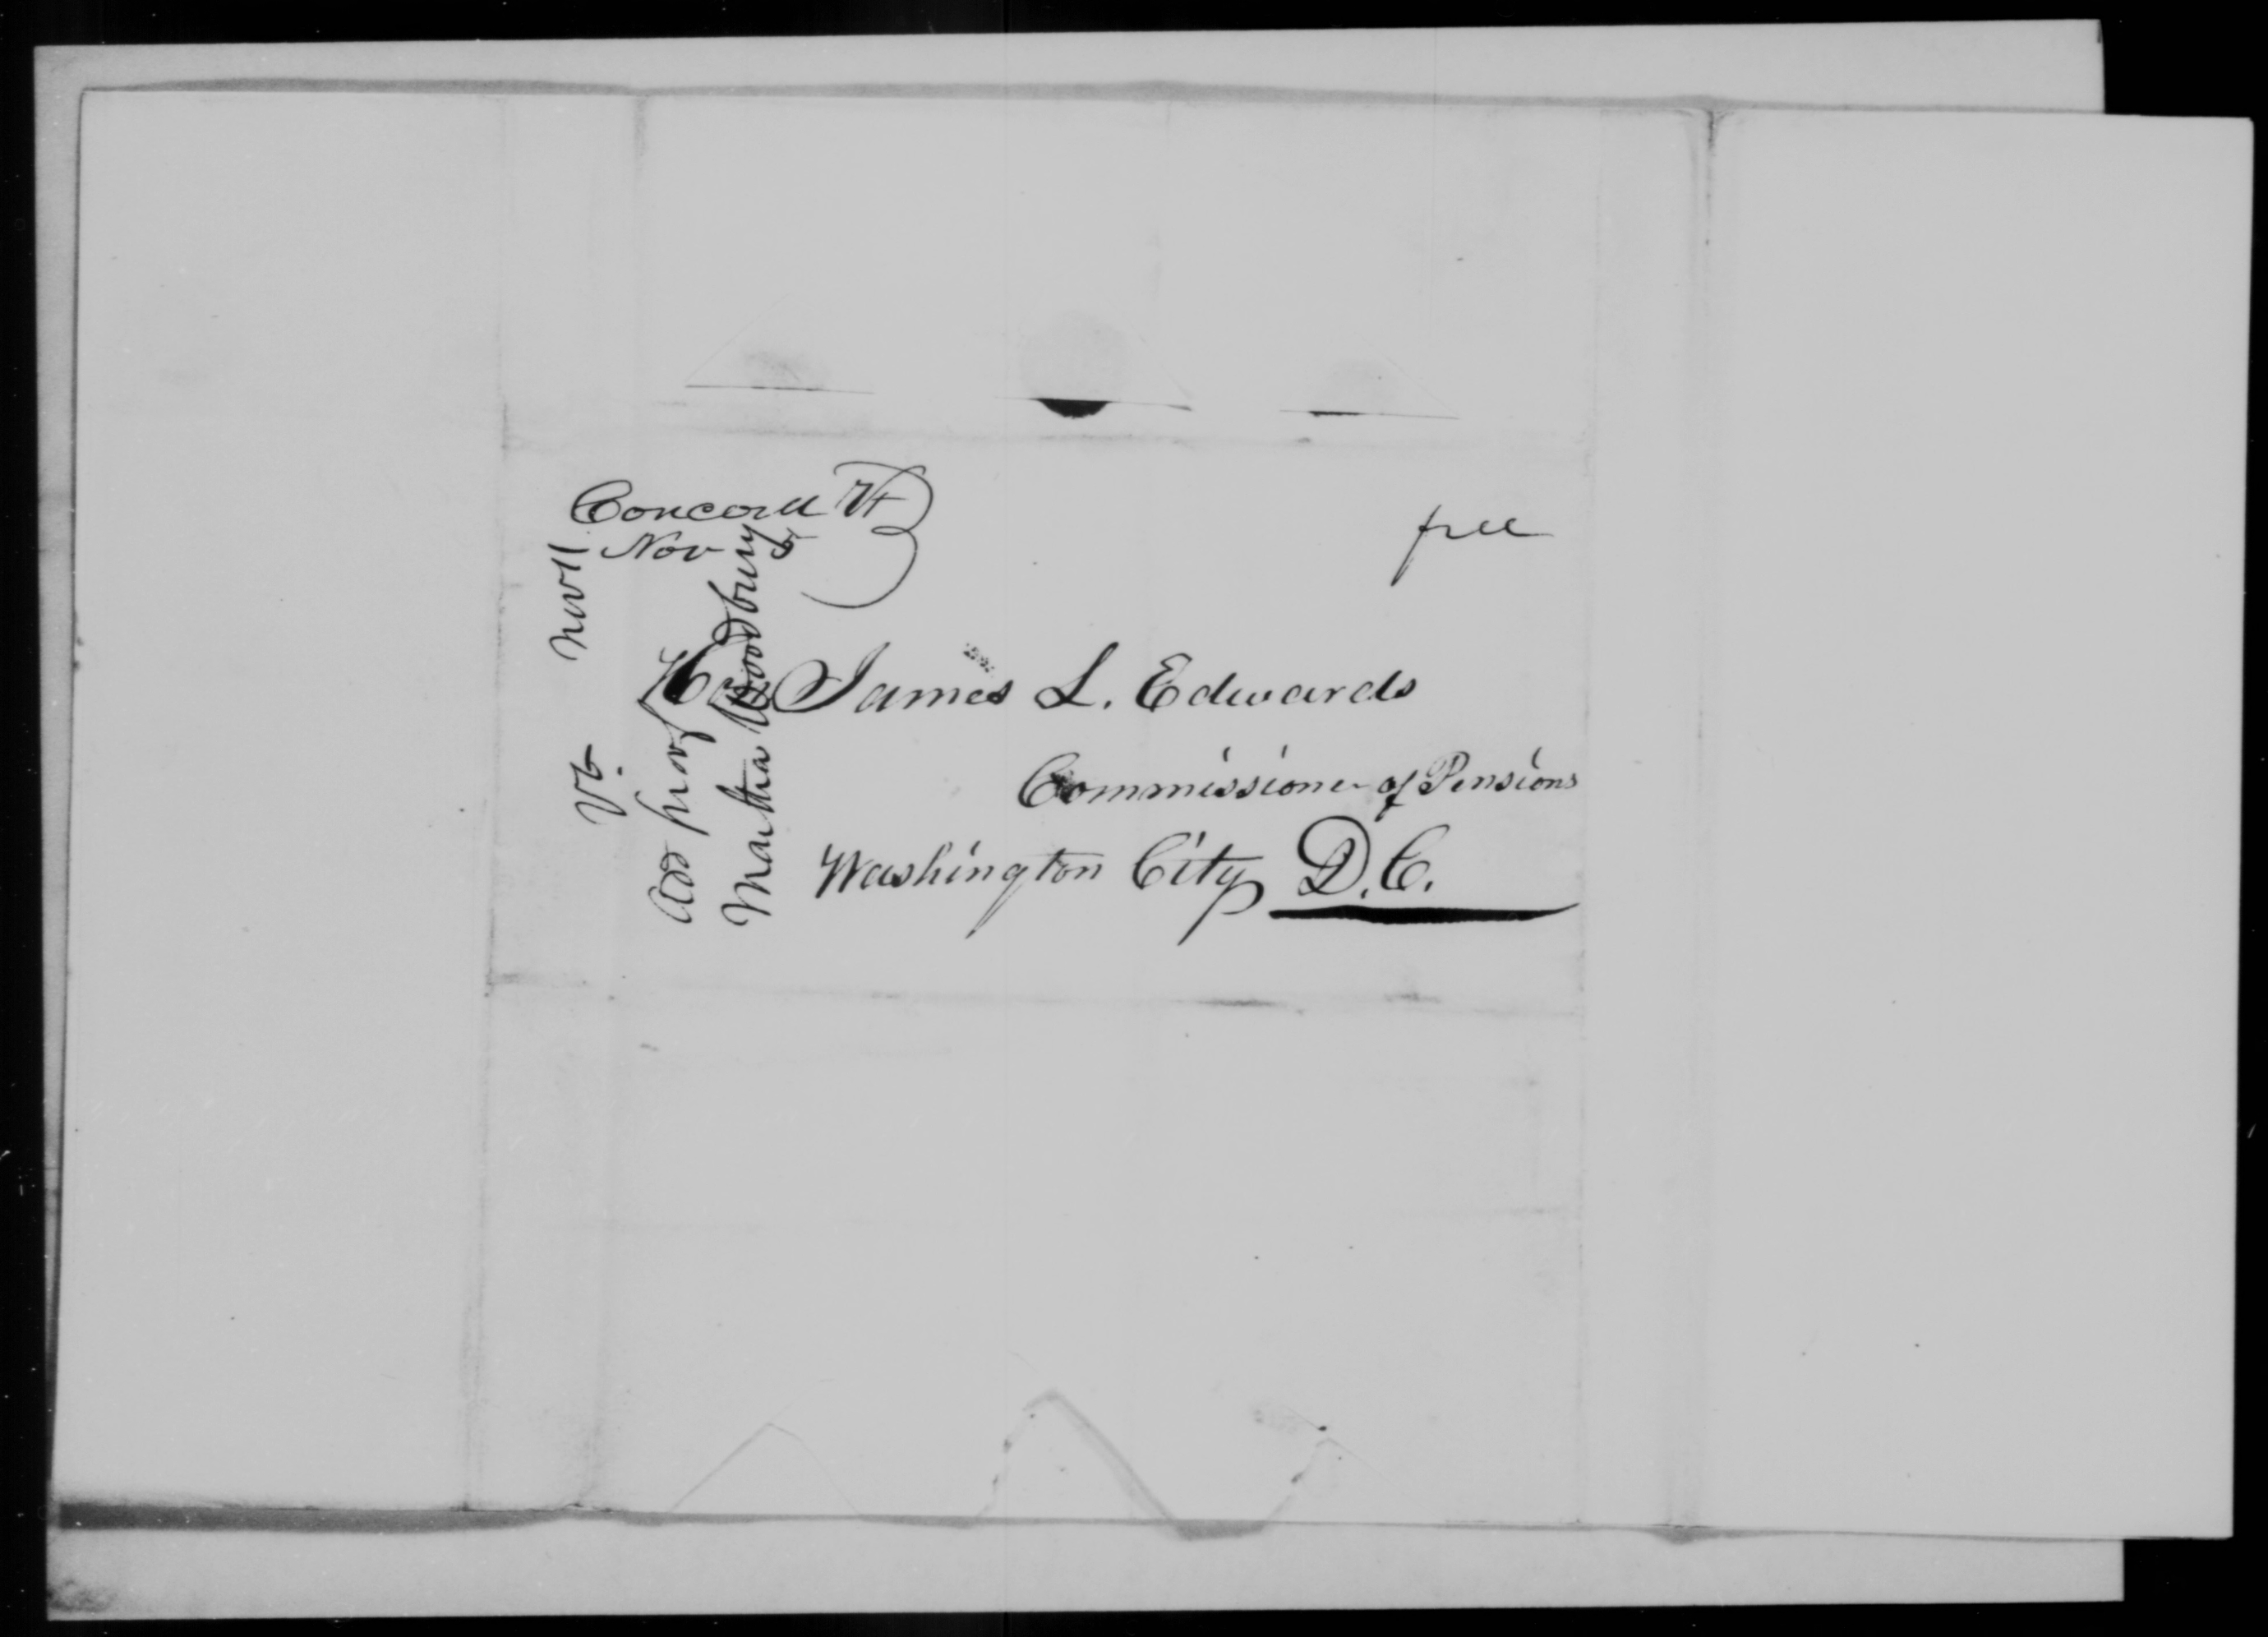 Concord Vt
Nov 5
free
Hon James L. Edwards
Commissioner of Pensions
Washington City D.C.
Vt. Nov 11
Add proof
Martha Woodbury